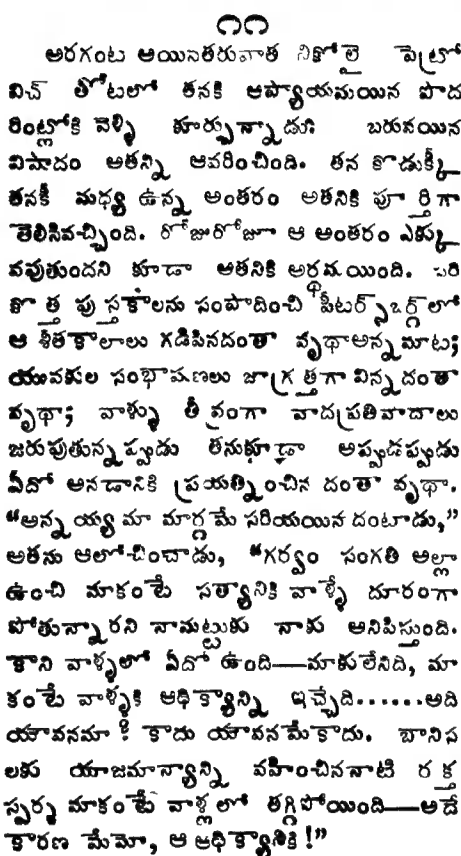 ౧౧
అరగంట అయినతరువాత నికోలై పెట్రో
విచ్ తోటలో తనకి ఆప్యాయమయిన పొద
రింట్లోకి వెళ్ళి కూర్చున్నాడు. బరువయిన
విషాదం అతన్ని ఆవరించింది. తన కొడుక్కీ
తనకీ మధ్య ఉన్న అంతరం అతనికి పూర్తిగా
తెలిసివచ్చింది. రోజురోజూ ఆ అంతరం ఎక్కు
వవుతుందని కూడా అతనికి అర్థమయింది. మరి
కొత్త పుస్తకాలను సంపాదించి పీటర్స్‌బర్గ్‌లో
ఆ శీతకాలాలు గడిపినదంతా వృథాఅన్నమాట;
యువకుల సంభాషణలు జాగ్రత్తగా విన్నదంతా
వృథా; వాళ్ళు తీవ్రంగా వాదప్రతివాదాలు
జరుపుతున్నప్పుడు తనుకూడా అప్పుడప్పుడు
ఏదో అనడానికి ప్రయత్నించిన దంతా వృథా.
“అన్నయ్య మా మార్గమే సరియయిన దంటాడు,”
అతను ఆలోచించాడు, “గర్వం సంగతి అల్లా
ఉంచి మాకంటే సత్యానికి వాళ్ళే దూరంగా
పోతున్నారని నామట్టుకు నాకు అనిపిస్తుంది.
కాని వాళ్ళలో ఏదో ఉంది—మాకులేనిది, మా
కంటే వాళ్ళకి ఆధిక్యాన్ని ఇచ్చేది......అది
యౌవనమా? కాదు యౌవనమేకాదు. బానిస
లకు యాజమాన్యాన్ని వహించిననాటి రక్త
స్పర్శ మాకంటే వాళ్లలో తగ్గిపోయింది—అదే
కారణ మేమో, ఆ ఆధిక్యానికి!”